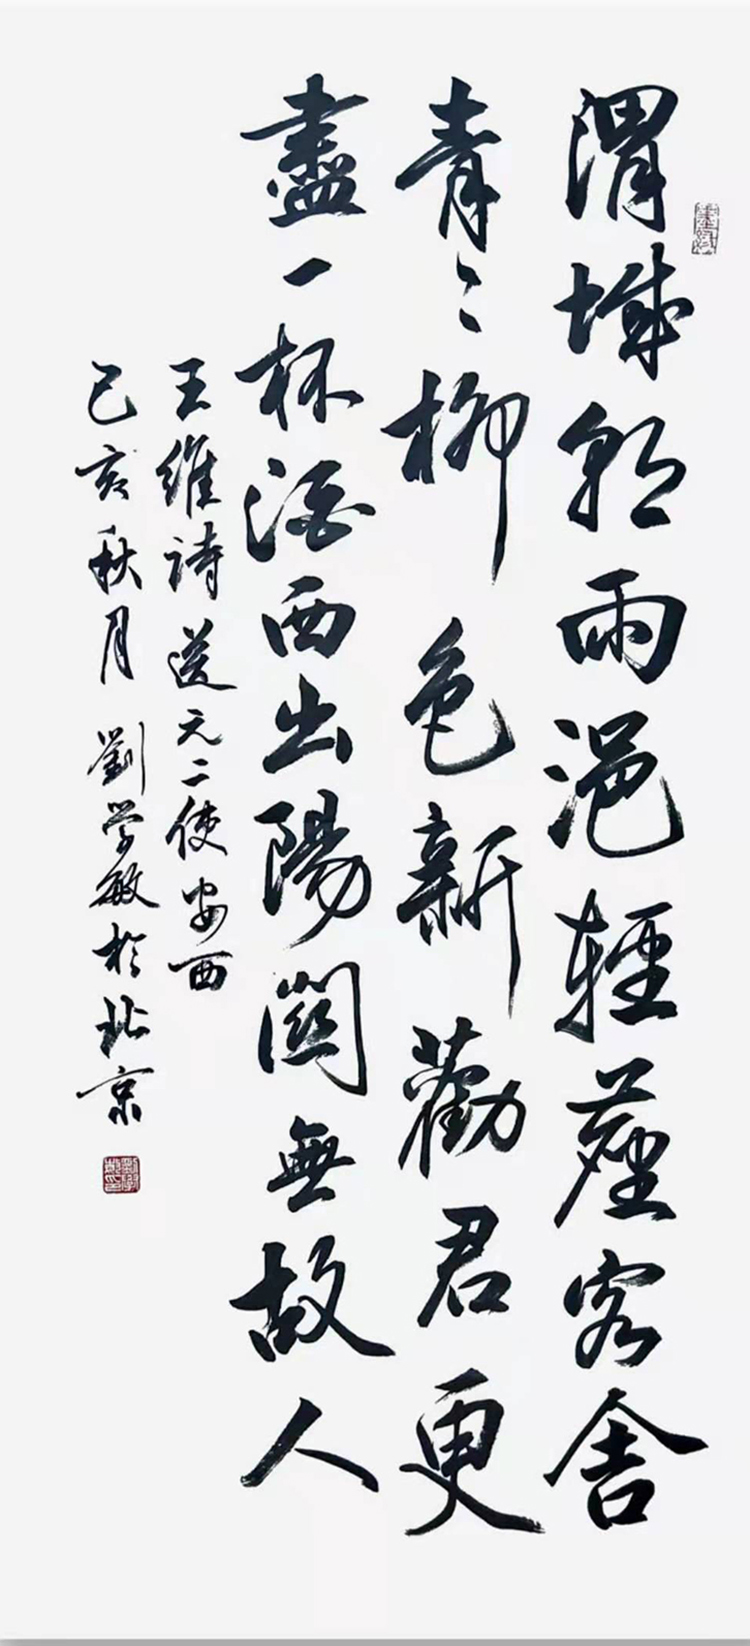 渭城朝雨浥輕塵客舍
青〻柳色新勸君更
盡一杯酒西出陽關無故人
王維詩送元二使安西
己亥秋月劉学敏於北京